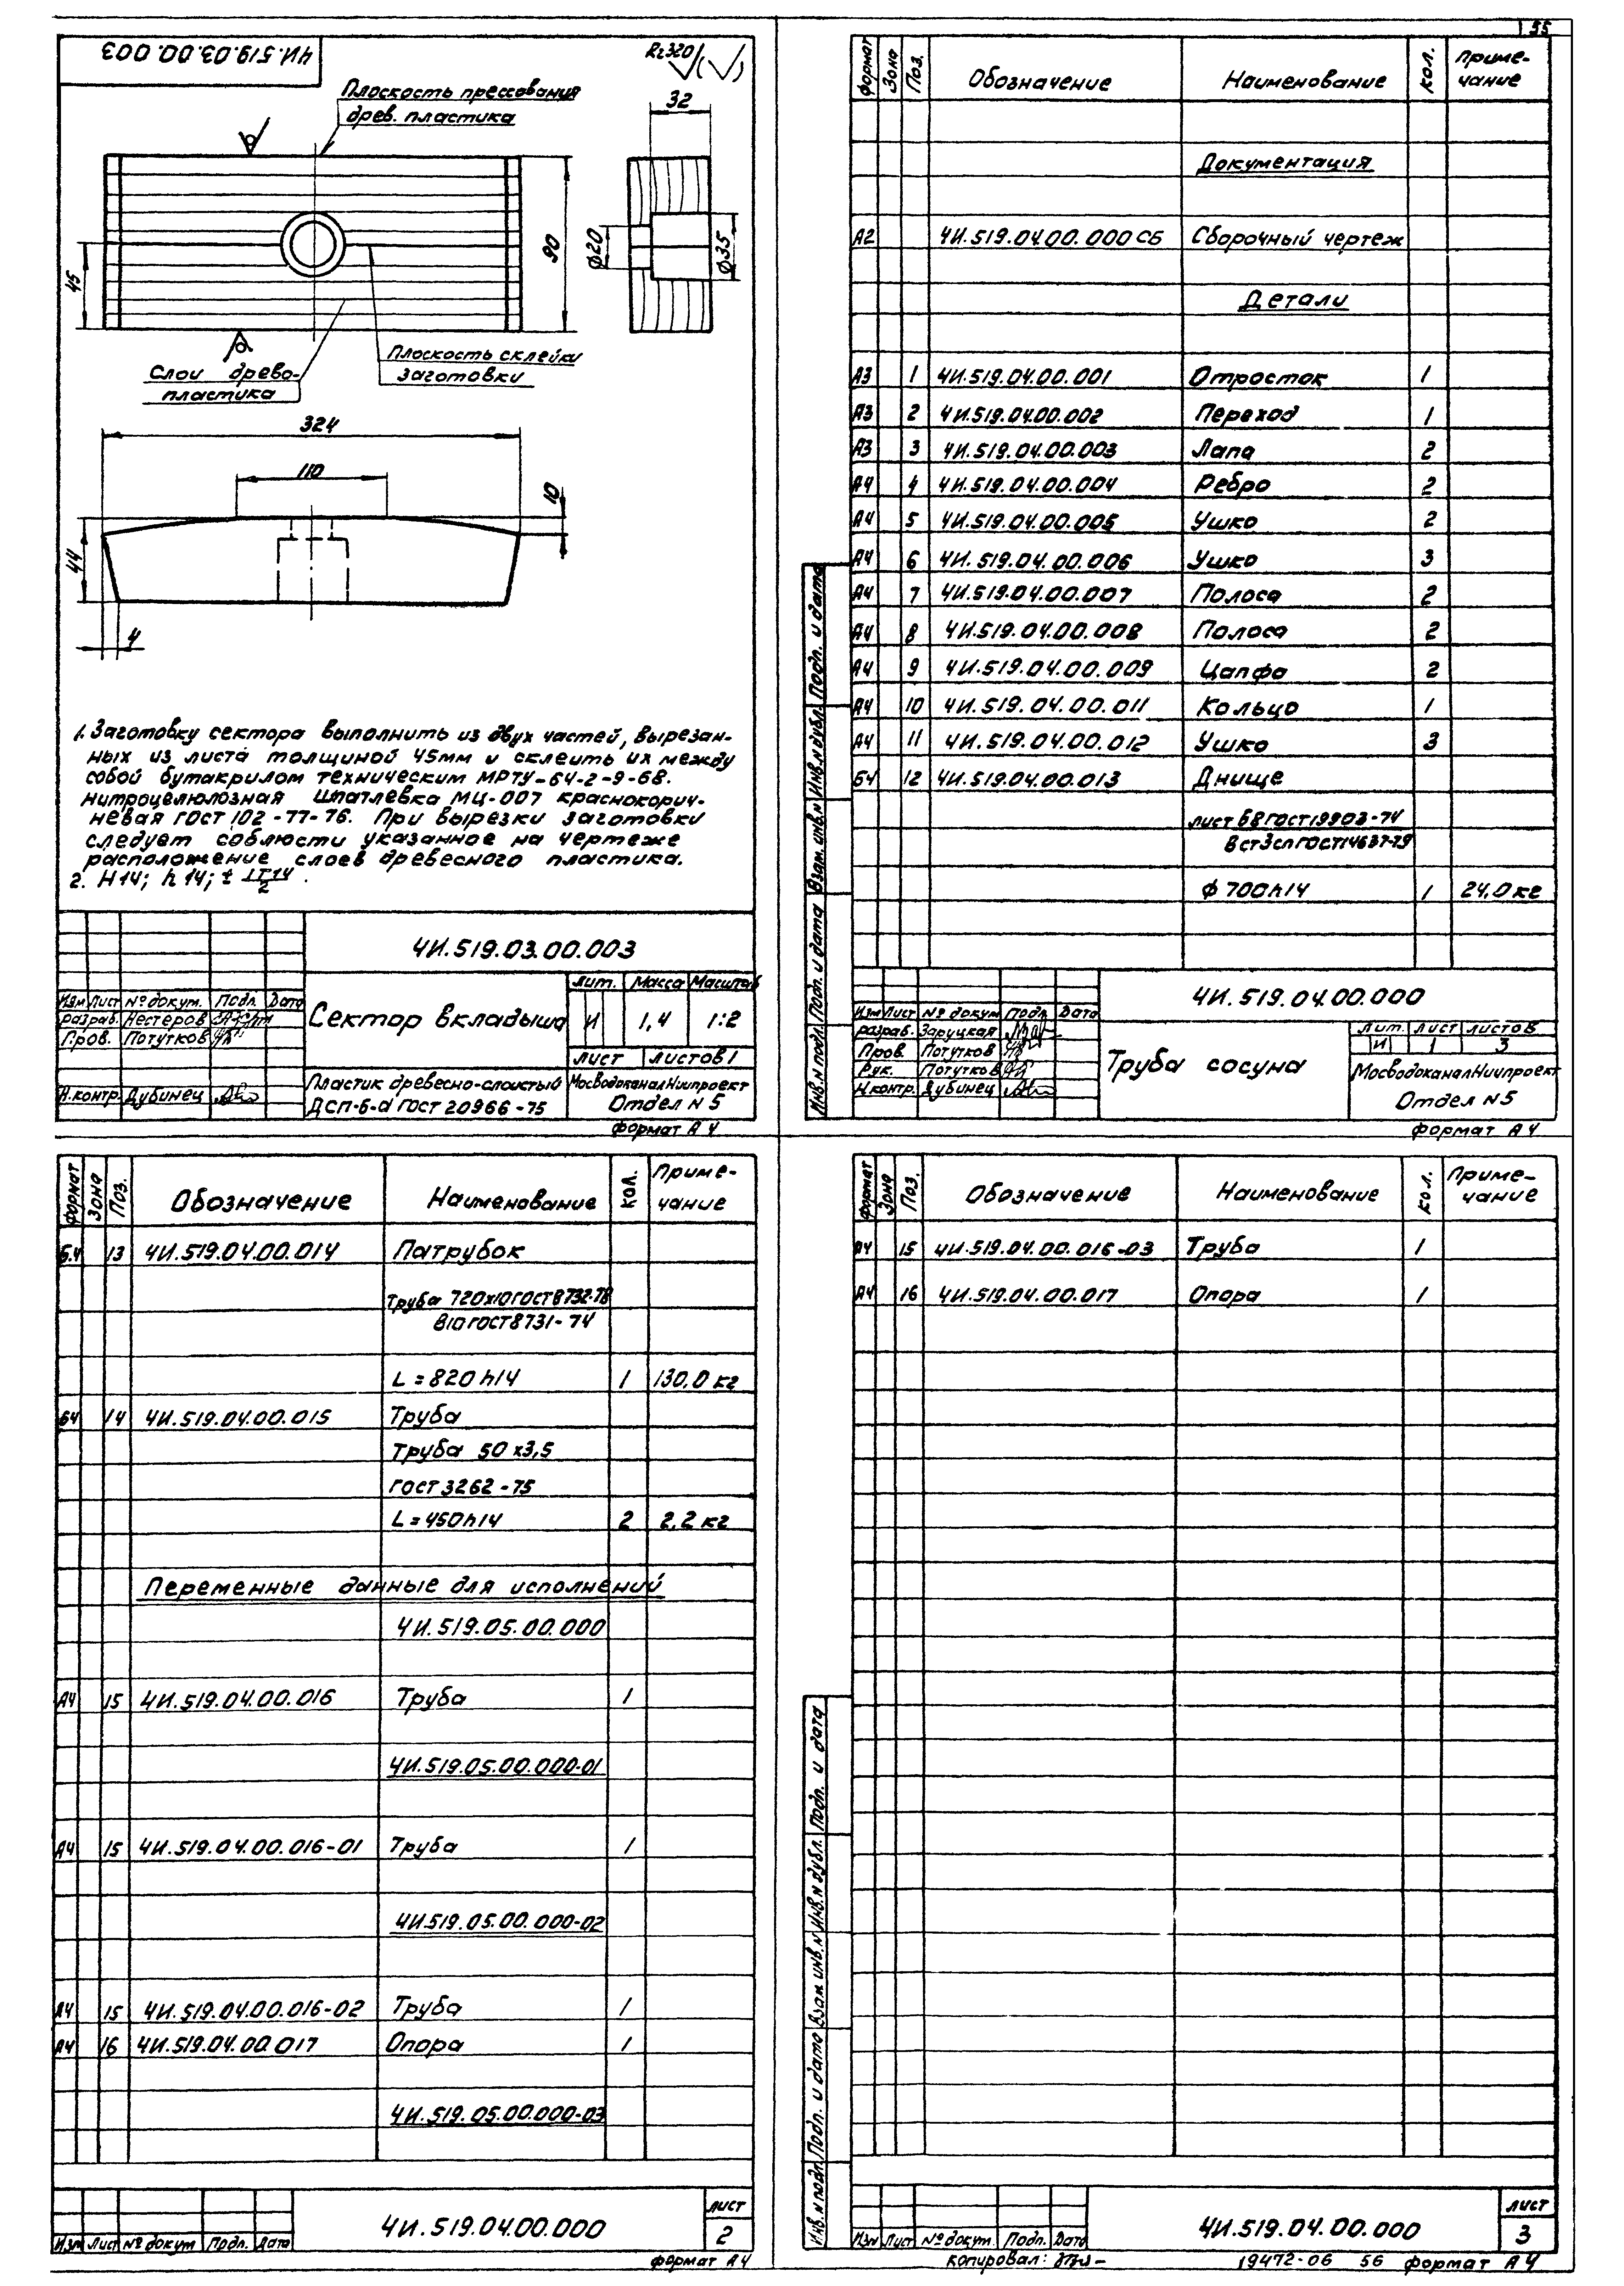 55
4И.519.03.00.003
Rz320 (√)
Плоскость прессования
древ. пластика
32
90
45
ϕ20
ϕ35
Слои древо-
пластика
Плоскость склейки
заготовки
324
110
10
44
4
1. Заготовку сектора выполнить из двух частей, вырезан-
ных из листа толщиной 45мм и склеить их между
собой бутакрилом техническим МРТУ-64-2-9-68.
Нитроцелюлозная шпатлевка МЦ-007 краснокорич-
невая ГОСТ 102-77-76. При вырезки заготовки
следует соблюсти указанное на чертеже
расположение слоев древесного пластика.
2. H14; h14; ± IT14/2.
4И.519.03.00.003
Изм Лист № докум. Подп. Дата
Разраб. Нестеров
Пров. Потутков
Н.контр. Дубинец
Сектор вкладыша
Лит. Масса Масштаб
И 1,4 1:2
Лист Листов 1
Пластик древесно-слоистый
ДСП-Б-а ГОСТ 20966-75
МосводоканалНиипроект
Отдел N 5
формат А4
формат Зона Поз. Обозначение Наименование Кол. Приме-
чание
Документация
А2 4И.519.04.00.000 СБ Сборочный чертеж
Детали
А3 1 4И.519.04.00.001 Отросток 1
А3 2 4И.519.04.00.002 Переход 1
А3 3 4И.519.04.00.003 Лапа 2
А4 4 4И.519.04.00.004 Ребро 2
А4 5 4И.519.04.00.005 Ушко 2
А4 6 4И.519.04.00.006 Ушко 3
А4 7 4И.519.04.00.007 Полоса 2
А4 8 4И.519.04.00.008 Полоса 2
А4 9 4И.519.04.00.009 Цапфа 2
А4 10 4И.519.04.00.011 Кольцо 1
А4 11 4И.519.04.00.012 Ушко 3
Б4 12 4И.519.04.00.013 Днище
Лист Б8 ГОСТ 19903-74
ВСт3сп ГОСТ 14637-79
ϕ 700h14 1 24,0 кг
Инв.N подл. Подп. и дата Взам. инв.N Инв.N дубл. Подп. и дата
4И.519.04.00.000
Изм Лист № докум Подп Дата
Разраб. Заруцкая
Пров. Потутков
Рук. Потутков
Н.контр. Дубинец
Труба сосуна
Лит. Лист Листов
И 1 3
МосводоканалНиипроект
Отдел N5
формат А4
формат Зона Поз. Обозначение Наименование Кол. Приме-
чание
Б.4 13 4И.519.04.00.014 Патрубок
Труба 720х10 ГОСТ 8732-78
В10 ГОСТ 8731-74
L=820h14 1 130,0 кг
Б4 14 4И.519.04.00.015 Труба
Труба 50х3,5
ГОСТ 3262-75
L=450h14 2 2,2 кг
Переменные данные для исполнений
4И.519.05.00.000
А4 15 4И.519.04.00.016 Труба 1
4И.519.05.00.000-01
А4 15 4И.519.04.00.016-01 Труба 1
4И.519.05.00.000-02
А4 15 4И.519.04.00.016-02 Труба 1
А4 16 4И.519.04.00.017 Опора 1
4И.519.05.00.000-03
Изм Лист № докум Подп. Дата
4И.519.04.00.000
Лист
2
формат А4
формат Зона Поз. Обозначение Наименование Кол. Приме-
чание
А4 15 4И.519.04.00.016-03 Труба 1
А4 16 4И.519.04.00.017 Опора 1
Инв.N подл. Подп. и дата Взам инв.N Инв.N дубл. Подп. и дата
Изм Лист № докум. Подп. Дата
4И.519.04.00.000
Лист
3
Копировал:
19472-06 56 формат А4